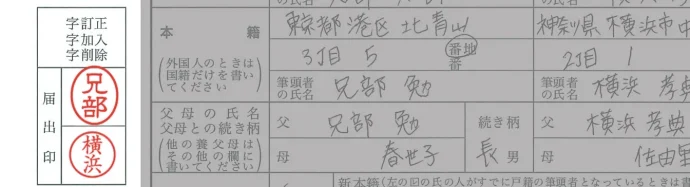 字訂正
字加入
字削除
届出印
兄部
横浜
の氏名
本籍
東京都港区北青山
神奈川県横浜市中
(外国人のときは
国籍だけを書い
てください)
3丁目 5
番地
番
2丁目 1
筆頭者
の氏名
兄部 勉
筆頭者
の氏名
横浜 孝典
父母の氏名
父母との続き柄
(他の養父母は
その他の欄に
書いてください)
父
兄部 勉
続き柄
父
横浜 孝典
母
春世子
長男
母
佐由里
新本籍(左の☑の氏の人がすでに戸籍の筆頭者となっているときは書